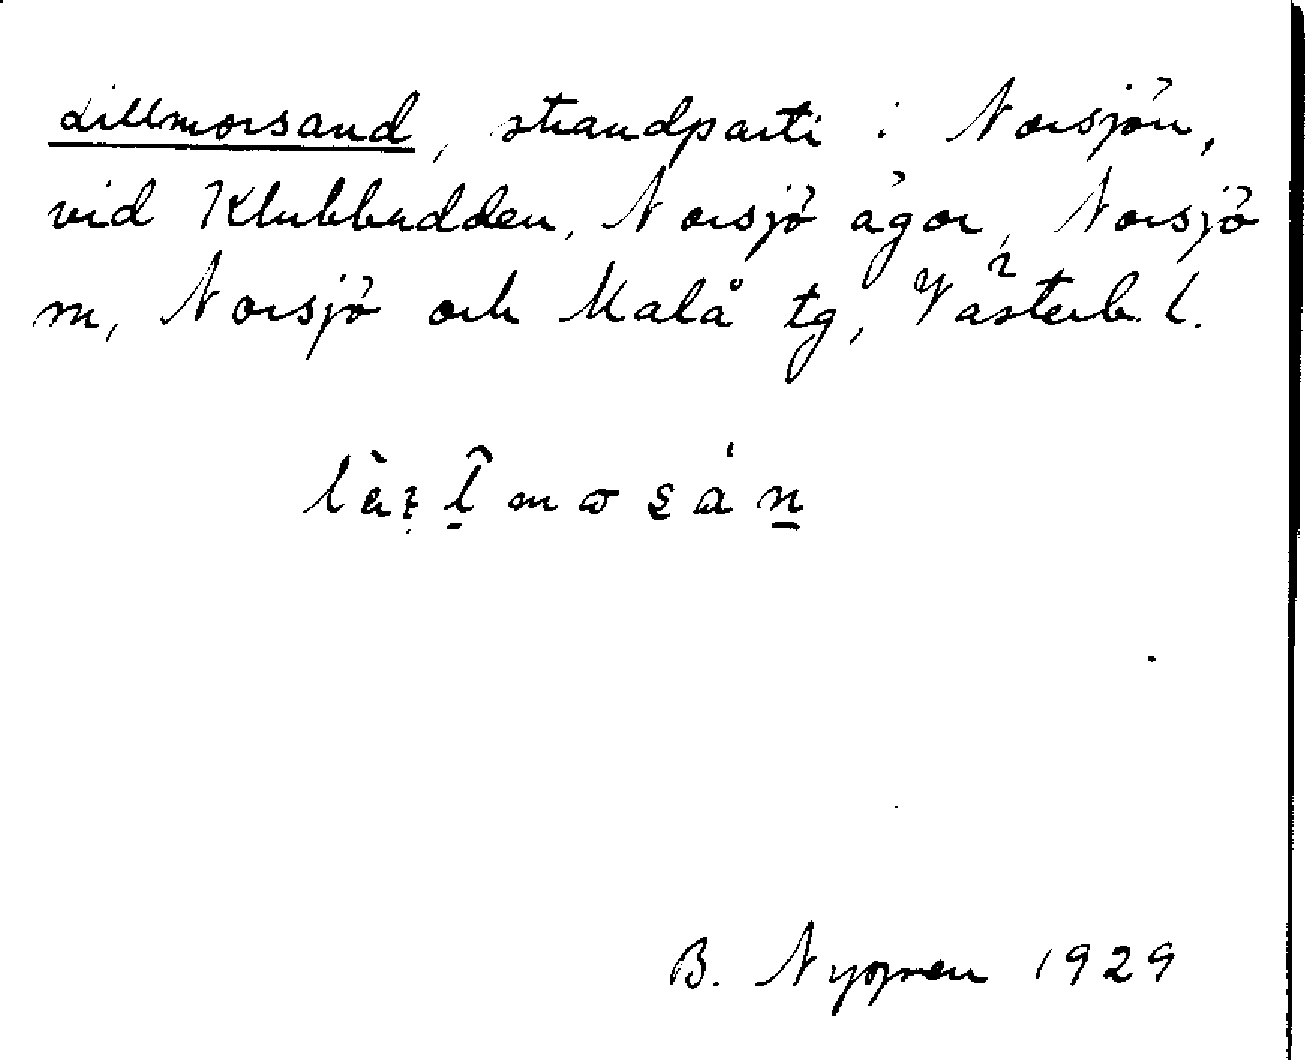 Lillmorsand, strandparti i Norsjön,
vid Klubbudden, Norsjö ägor, Norsjö
m, Norsjö och Malå tg, Västerb. l.
B. Nygren 1929